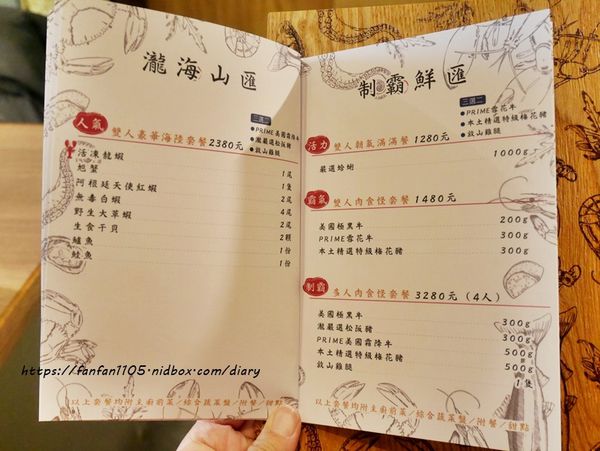 瀧海山匯
三選二
人氣 雙人豪華海陸套餐2380元
●PRIME美國霜降牛
●瀧嚴選松阪豬
●放山雞腿
活凍龍蝦 1尾
旭蟹 1隻
阿根廷天使紅蝦 2尾
無毒白蝦 4尾
野生大草蝦 2尾
生食干貝 2顆
鱸魚 1份
鮭魚 1份
以上套餐均附主廚前菜/綜合蔬菜盤/附餐/甜點
制霸鮮匯
三選二
活力 雙人朝氣滿滿餐 1280元
●PRIME雪花牛
●本土精選特級梅花豬
●放山雞腿
嚴選蛤蜊 1000g
霸氣 雙人肉食怪套餐 1480元
美國極黑牛 200g
PRIME雪花牛 300g
本土精選特級梅花豬 300g
制霸 多人肉食怪套餐 3280元（4人）
美國極黑牛 300g
瀧嚴選松阪豬 300g
PRIME美國霜降牛 500g
本土精選特級梅花豬 500g
放山雞腿 1隻
以上套餐均附主廚前菜/綜合蔬菜盤/附餐/甜點
https://fanfan1105.nidbox.com/diary